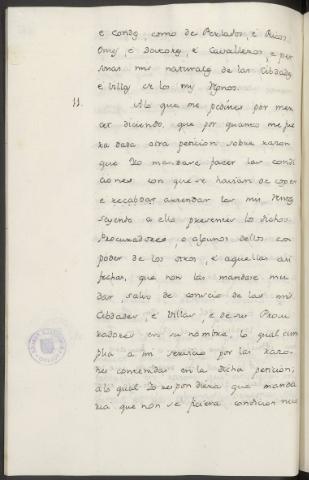 e condes, como de Perlados, e Ricos
Omes, e Doctores, e Cavalleros, e per
sonas mis naturales de las Cibdades
e Villas de los mis Regnos.
11. A lo que me pedistes por mer
cet diciendo, que por quanto me fue
ra dada otra peticion sobre razon
que Yo mandare facer las condi
ciones con que se havian de coger
e recabdar, e arrendar las mis Rentas
seyendo a ello presentes los dichos
Procuradores, o algunos dellos con
poder de los otros, e aquellas asi
fechas, que non las mandase mu
dar, salvo de consejo de las mis
Cibdades, e Villas, e de sus Procu
radores en su nombre, lo qual cum
plia a mi servicio por las razo
nes contenidas en la dicha peticion;
a lo qual Yo respondiera que manda
ria que non se ficiera condicion nue